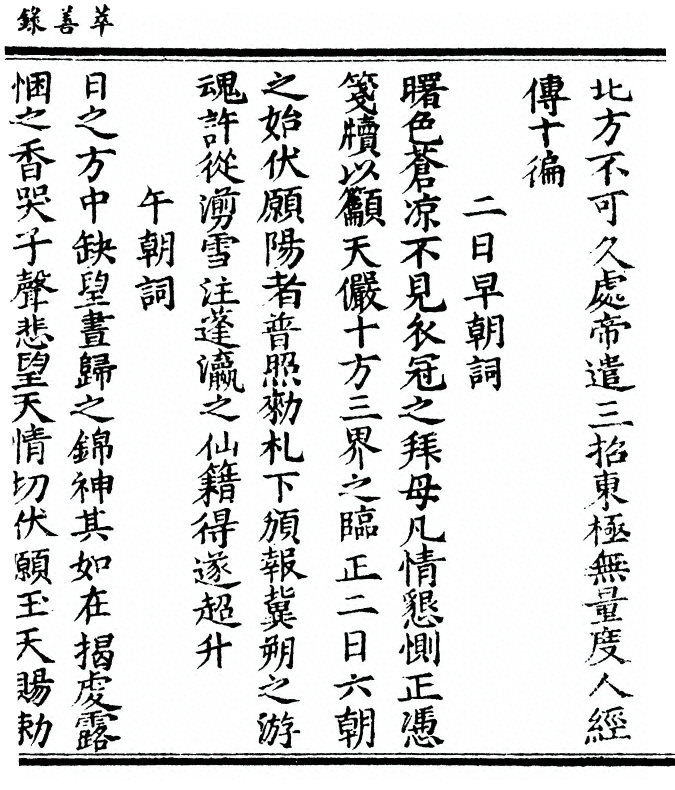 萃善錄
北方不可久處帝遣三招東極無量度人經
傳十徧
二日早朝詞
曙色蒼凉不見衣冠之拜母凡情懇惻正憑
箋牘以籲天儼十方三界之臨正二日六朝
之始伏願陽者普照勑札下頒報冀朔之游
魂許從湔雪注蓬瀛之仙籍得遂超升
午朝詞
日之方中缺望晝歸之錦神其如在揭虔露
悃之香哭子聲悲望天情切伏願玉天賜勅